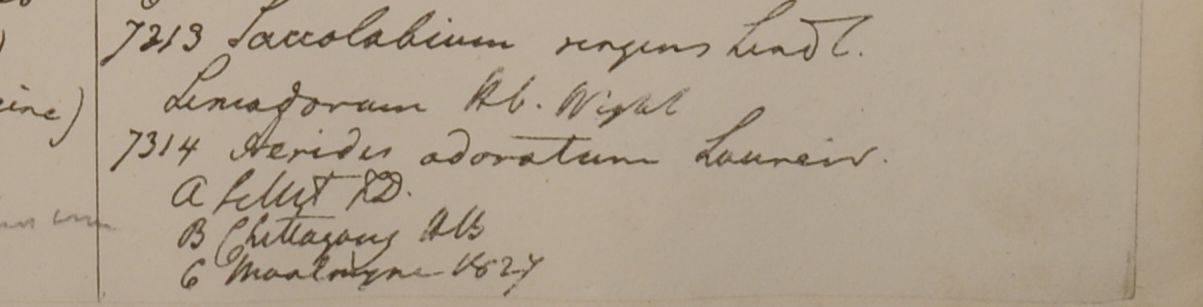 ine)
7313 Saccolabium ringens Lindl.
Limodorum Hb. Wight
7314 Aerides odoratum Loureir.
A Sillet F.D.
B Chittagong HB
C Moalmyne 1827